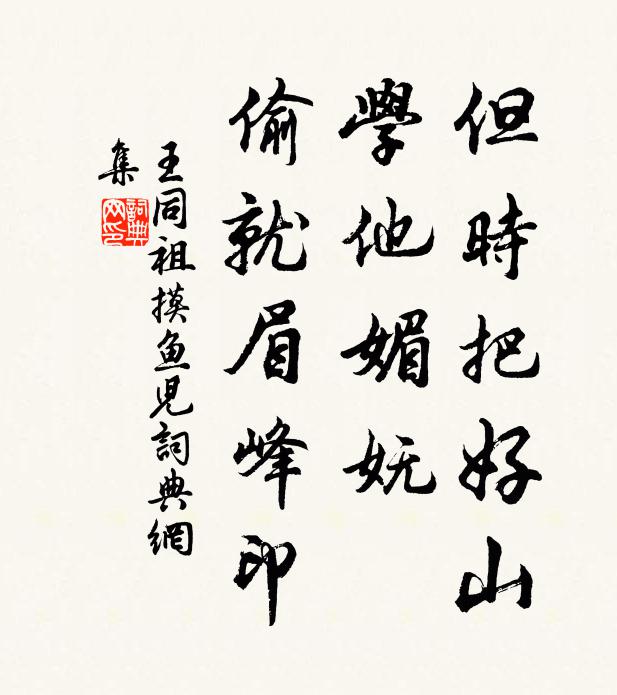 但時把好山
學他媚妩
偷就眉峰印
王同祖摸鱼児詞典網
集
詞典
网印